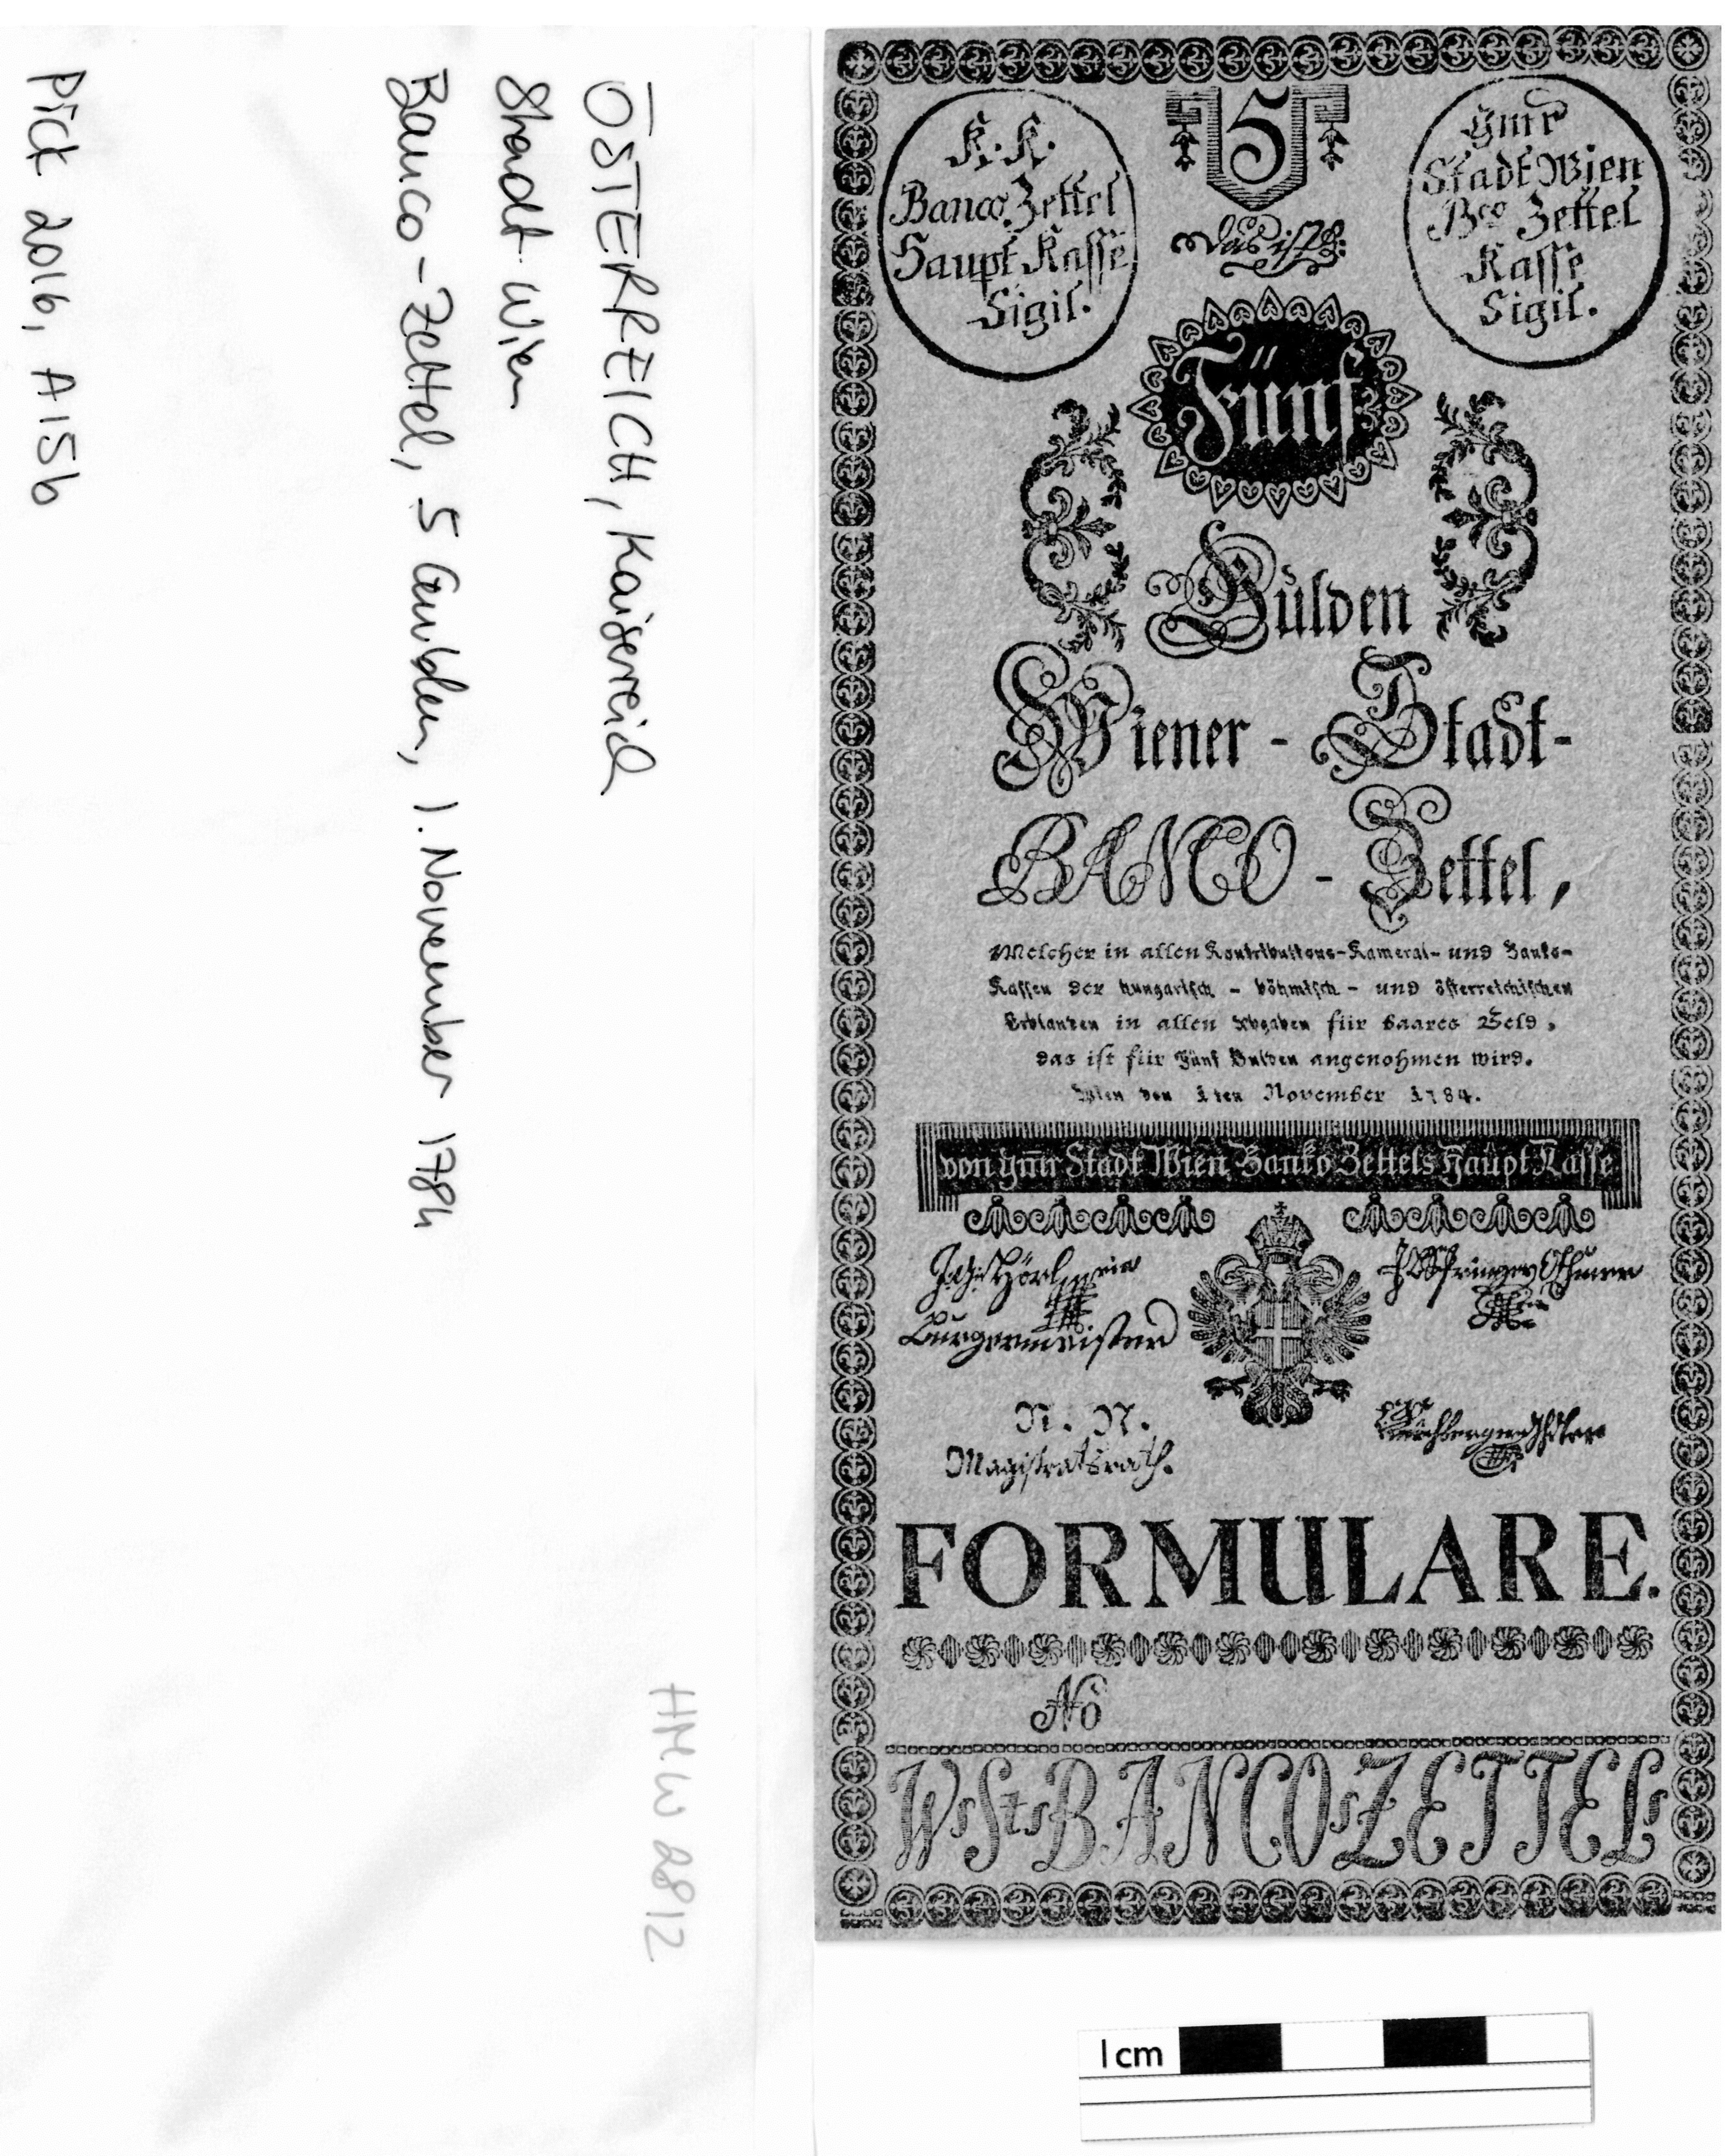 ÖSTERREICH, Kaiserreich
Stadt Wien
Banco-Zettel, 5 Gulden, 1. November 1784
Pick 201b, A15b
HMW 2812
K. K.
Banco Zettel
Haupt Kasse
Sigil.
5
das ist
Gmr
Stadt Wien
Bco Zettel
Kasse
Sigil.
Fünf
Gulden
Wiener - Stadt-
BANCO - Zettel,
Welcher in allen Kontributions-Kameral- und Banks-
Kassen der hungarisch - böhmisch - und österreichischen
Erblanden in allen Abgaben für baares Geld,
das ist für Fünf Gulden angenohmen wird.
Wien den 1ten November 1784.
von gmr Stadt Wien Banko Zettels Haupt Kasse
Burgermeister
N. N.
Magistratsrath.
FORMULARE.
No
Ws Sts BANCOs ZETTELs
1 cm